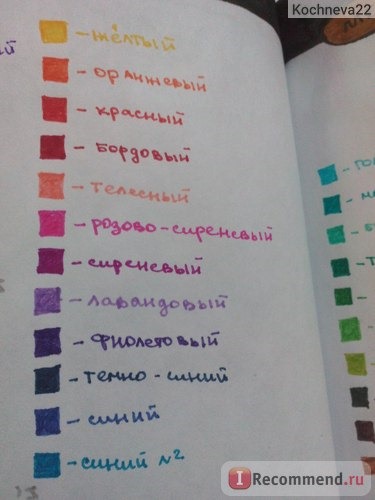 Kochneva22
- жёлтый
- оранжевый
- красный
- бордовый
- телесный
- розово-сиреневый
- сиреневый
- лавандовый
- фиолетовый
- темно-синий
- синий
- синий №2
I Recommend.ru